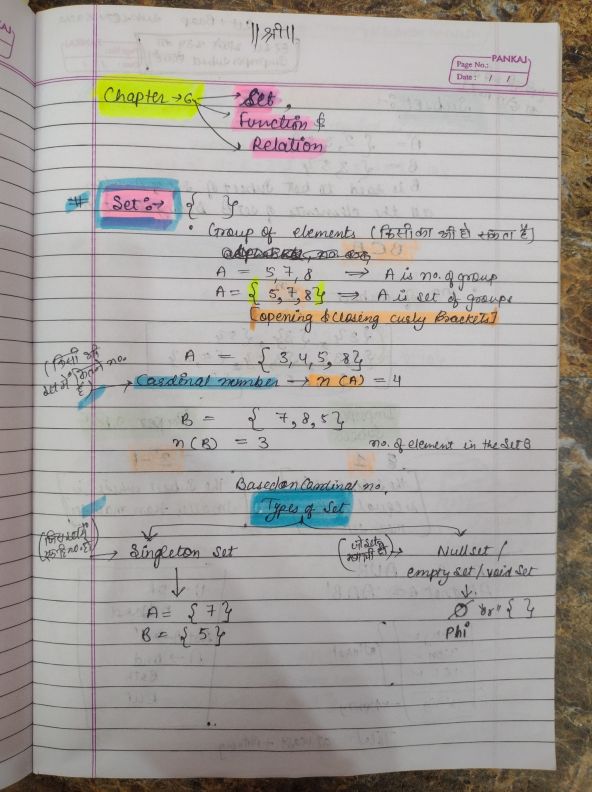 ॥ श्री ॥
PANKAJ
Page No.:
Date: / /
Chapter → 6 → Set,
Function &
Relation
# Set :→ { }
• Group of elements (किसी का भी हो सकता है)
A = 5, 7, 8 ⇒ A is no. of group
A = { 5, 7, 8 } ⇒ A is set of groups
[opening & closing curly Brackets]
A = { 3, 4, 5, 8 }
(किसी भी set में कितने no. है) → Cardinal number → n (A) = 4
B = { 7, 8, 5 }
n (B) = 3 no. of element in the set B
Based on Cardinal no.
Types of Set
→ Singleton Set
→ Null set /
empty set / void set
A = { 7 }
B = { 5 }
∅ "or" { }
Phi